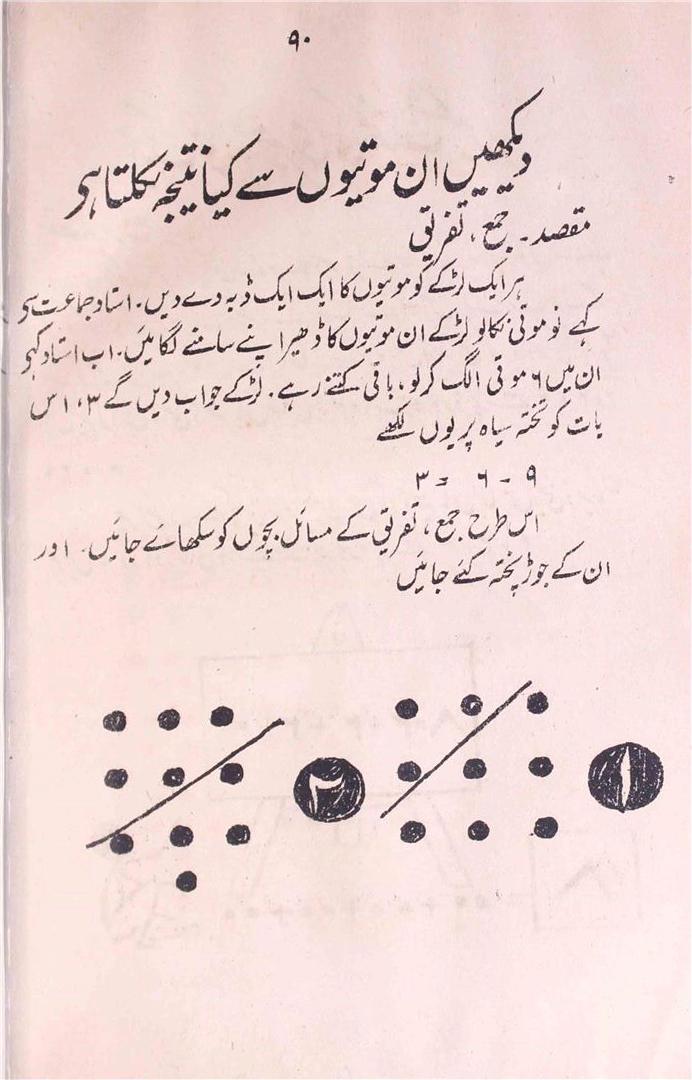 ۹۰
دیکھیں ان موتیوں سے کیا نتیجہ نکلتا ہی
مقصد۔ جمع، تفریق
ہر ایک لڑکے کو موتیوں کا ایک ایک ڈبہ دے دیں۔ استاد جماعت سی
کہے نو موتی نکالو لڑکے ان موتیوں کا ڈھیر اپنے سامنے لگائیں۔ اب استاد کہی
ان میں ۶ موتی الگ کرلو، باقی کتنے رہے۔ لڑکے جواب دیں گے ۳، اس
بات کو تختہ سیاہ پر یوں لکھے
۹ - ۶ = ۳
اس طرح جمع، تفریق کے مسائل بچوں کو سکھائے جائیں۔ اور
ان کے جوڑ پختہ کئے جائیں
۱
۲